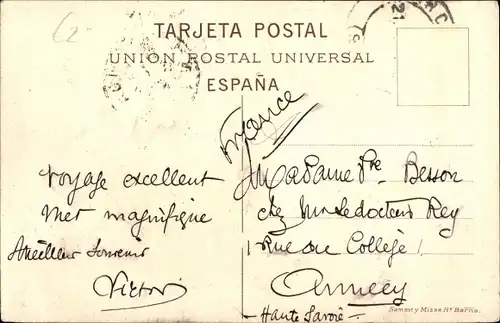 TARJETA POSTAL
UNIÓN POSTAL UNIVERSAL
ESPAÑA
France
Voyage excellent
Mer magnifique
Meilleur Souvenir
Victor
Madame Vve Besson
chez Mr le docteur Rey
1 Rue du Collège 1
Annecy
Haute Savoie
Samsot y Missé Hs Barna.